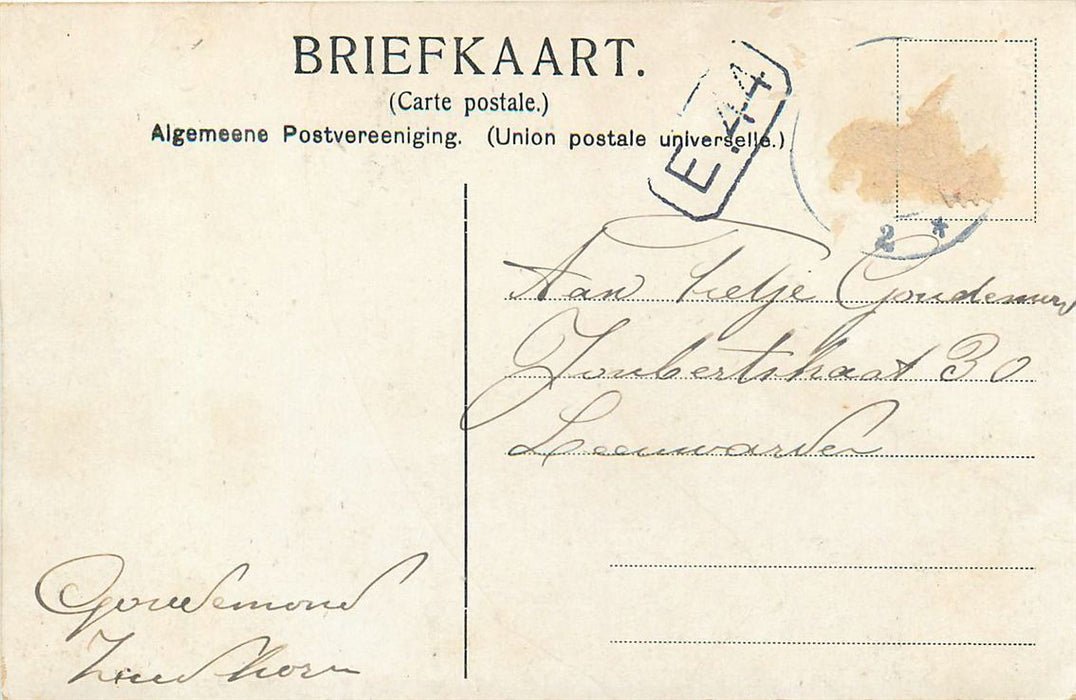 BRIEFKAART.
(Carte postale.)
Algemeene Postvereeniging. (Union postale universelle.)
E.44
2 *
Aan Tietje Goudemond
Joubertstraat 30
Leeuwarden
Goudemond
Zuidhorn